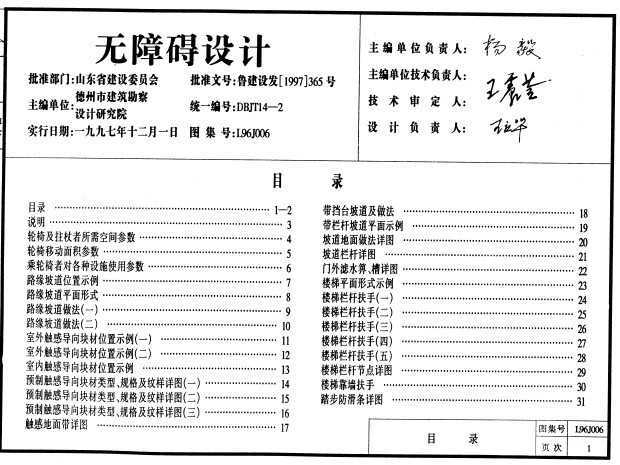 无障碍设计
批准部门:山东省建设委员会 批准文号:鲁建设发[1997]365号
主编单位:德州市建筑勘察设计研究院 统一编号:DBJT14—2
实行日期:一九九七年十二月一日 图集号:L96J006
主编单位负责人: 杨毅
主编单位技术负责人:
技术审定人:
设计负责人:
目 录
目录 1—2
说明 3
轮椅及拄杖者所需空间参数 4
轮椅移动面积参数 5
乘轮椅者对各种设施使用参数 6
路缘坡道位置示例 7
路缘坡道平面形式 8
路缘坡道做法(一) 9
路缘坡道做法(二) 10
室外触感导向块材位置示例(一) 11
室外触感导向块材位置示例(二) 12
室内触感导向块材位置示例 13
预制触感导向块材类型、规格及纹样详图(一) 14
预制触感导向块材类型、规格及纹样详图(二) 15
预制触感导向块材类型、规格及纹样详图(三) 16
触感地面带详图 17
带挡台坡道及做法 18
带栏杆坡道平面示例 19
坡道地面做法详图 20
坡道栏杆详图 21
门外滤水箅、槽详图 22
楼梯平面形式示例 23
楼梯栏杆扶手(一) 24
楼梯栏杆扶手(二) 25
楼梯栏杆扶手(三) 26
楼梯栏杆扶手(四) 27
楼梯栏杆扶手(五) 28
楼梯栏杆节点详图 29
楼梯靠墙扶手 30
踏步防滑条详图 31
目 录
图集号 L96J006
页次 1